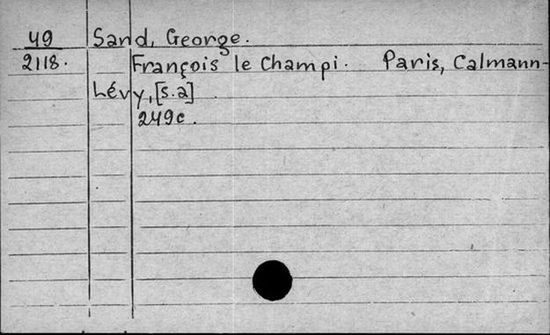 49 Sand, George.
2118. François le Champi. Paris, Calmann-
Lévy, [s.a]
249c.